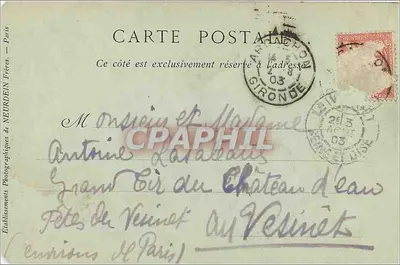 CARTE POSTALE
Ce côté est exclusivement réservé à l'adresse
ARCACHON
2 8
03
GIRONDE
LE VÉSINET
03
SEINE ET OISE
Etablissements Photographiques de NEURDEIN Frères. — Paris
Monsieur et Madame
CPAPHIL
Antoine
Grand Tir du Château d'eau
Fêtes du Vesinet au Vesinet
(environs de Paris)